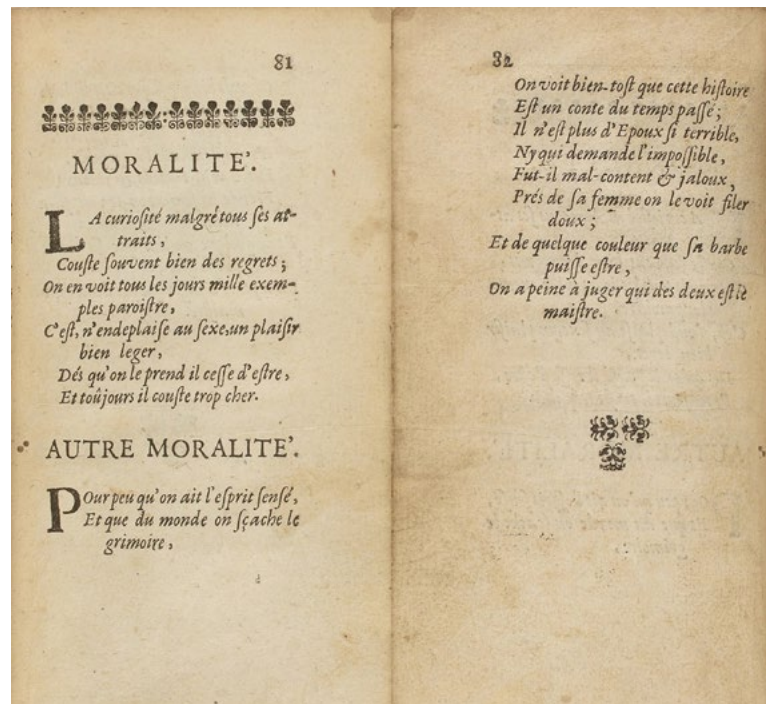 81
MORALITE'.
LA curioſité malgré tous ſes at-
traits,
Couſte ſouvent bien des regrets;
On en voit tous les jours mille exem-
ples paroiſtre,
C'eſt, n'endeplaiſe au ſexe,un plaiſir
bien leger,
Dés qu'on le prend il ceſſe d'eſtre,
Et toûjours il couſte trop cher.
AUTRE MORALITE'.
POur peu qu'on ait l'eſprit ſenſé,
Et que du monde on ſçache le
grimoire,
82
On voit bien-toſt que cette hiſtoire
Eſt un conte du temps paſſé;
Il n'eſt plus d'Epoux ſi terrible,
Ny qui demande l'impoſſible,
Fut-il mal-content & jaloux,
Prés de ſa femme on le voit filer
doux;
Et de quelque couleur que ſa barbe
puiſſe eſtre,
On a peine à juger qui des deux eſt le
maiſtre.